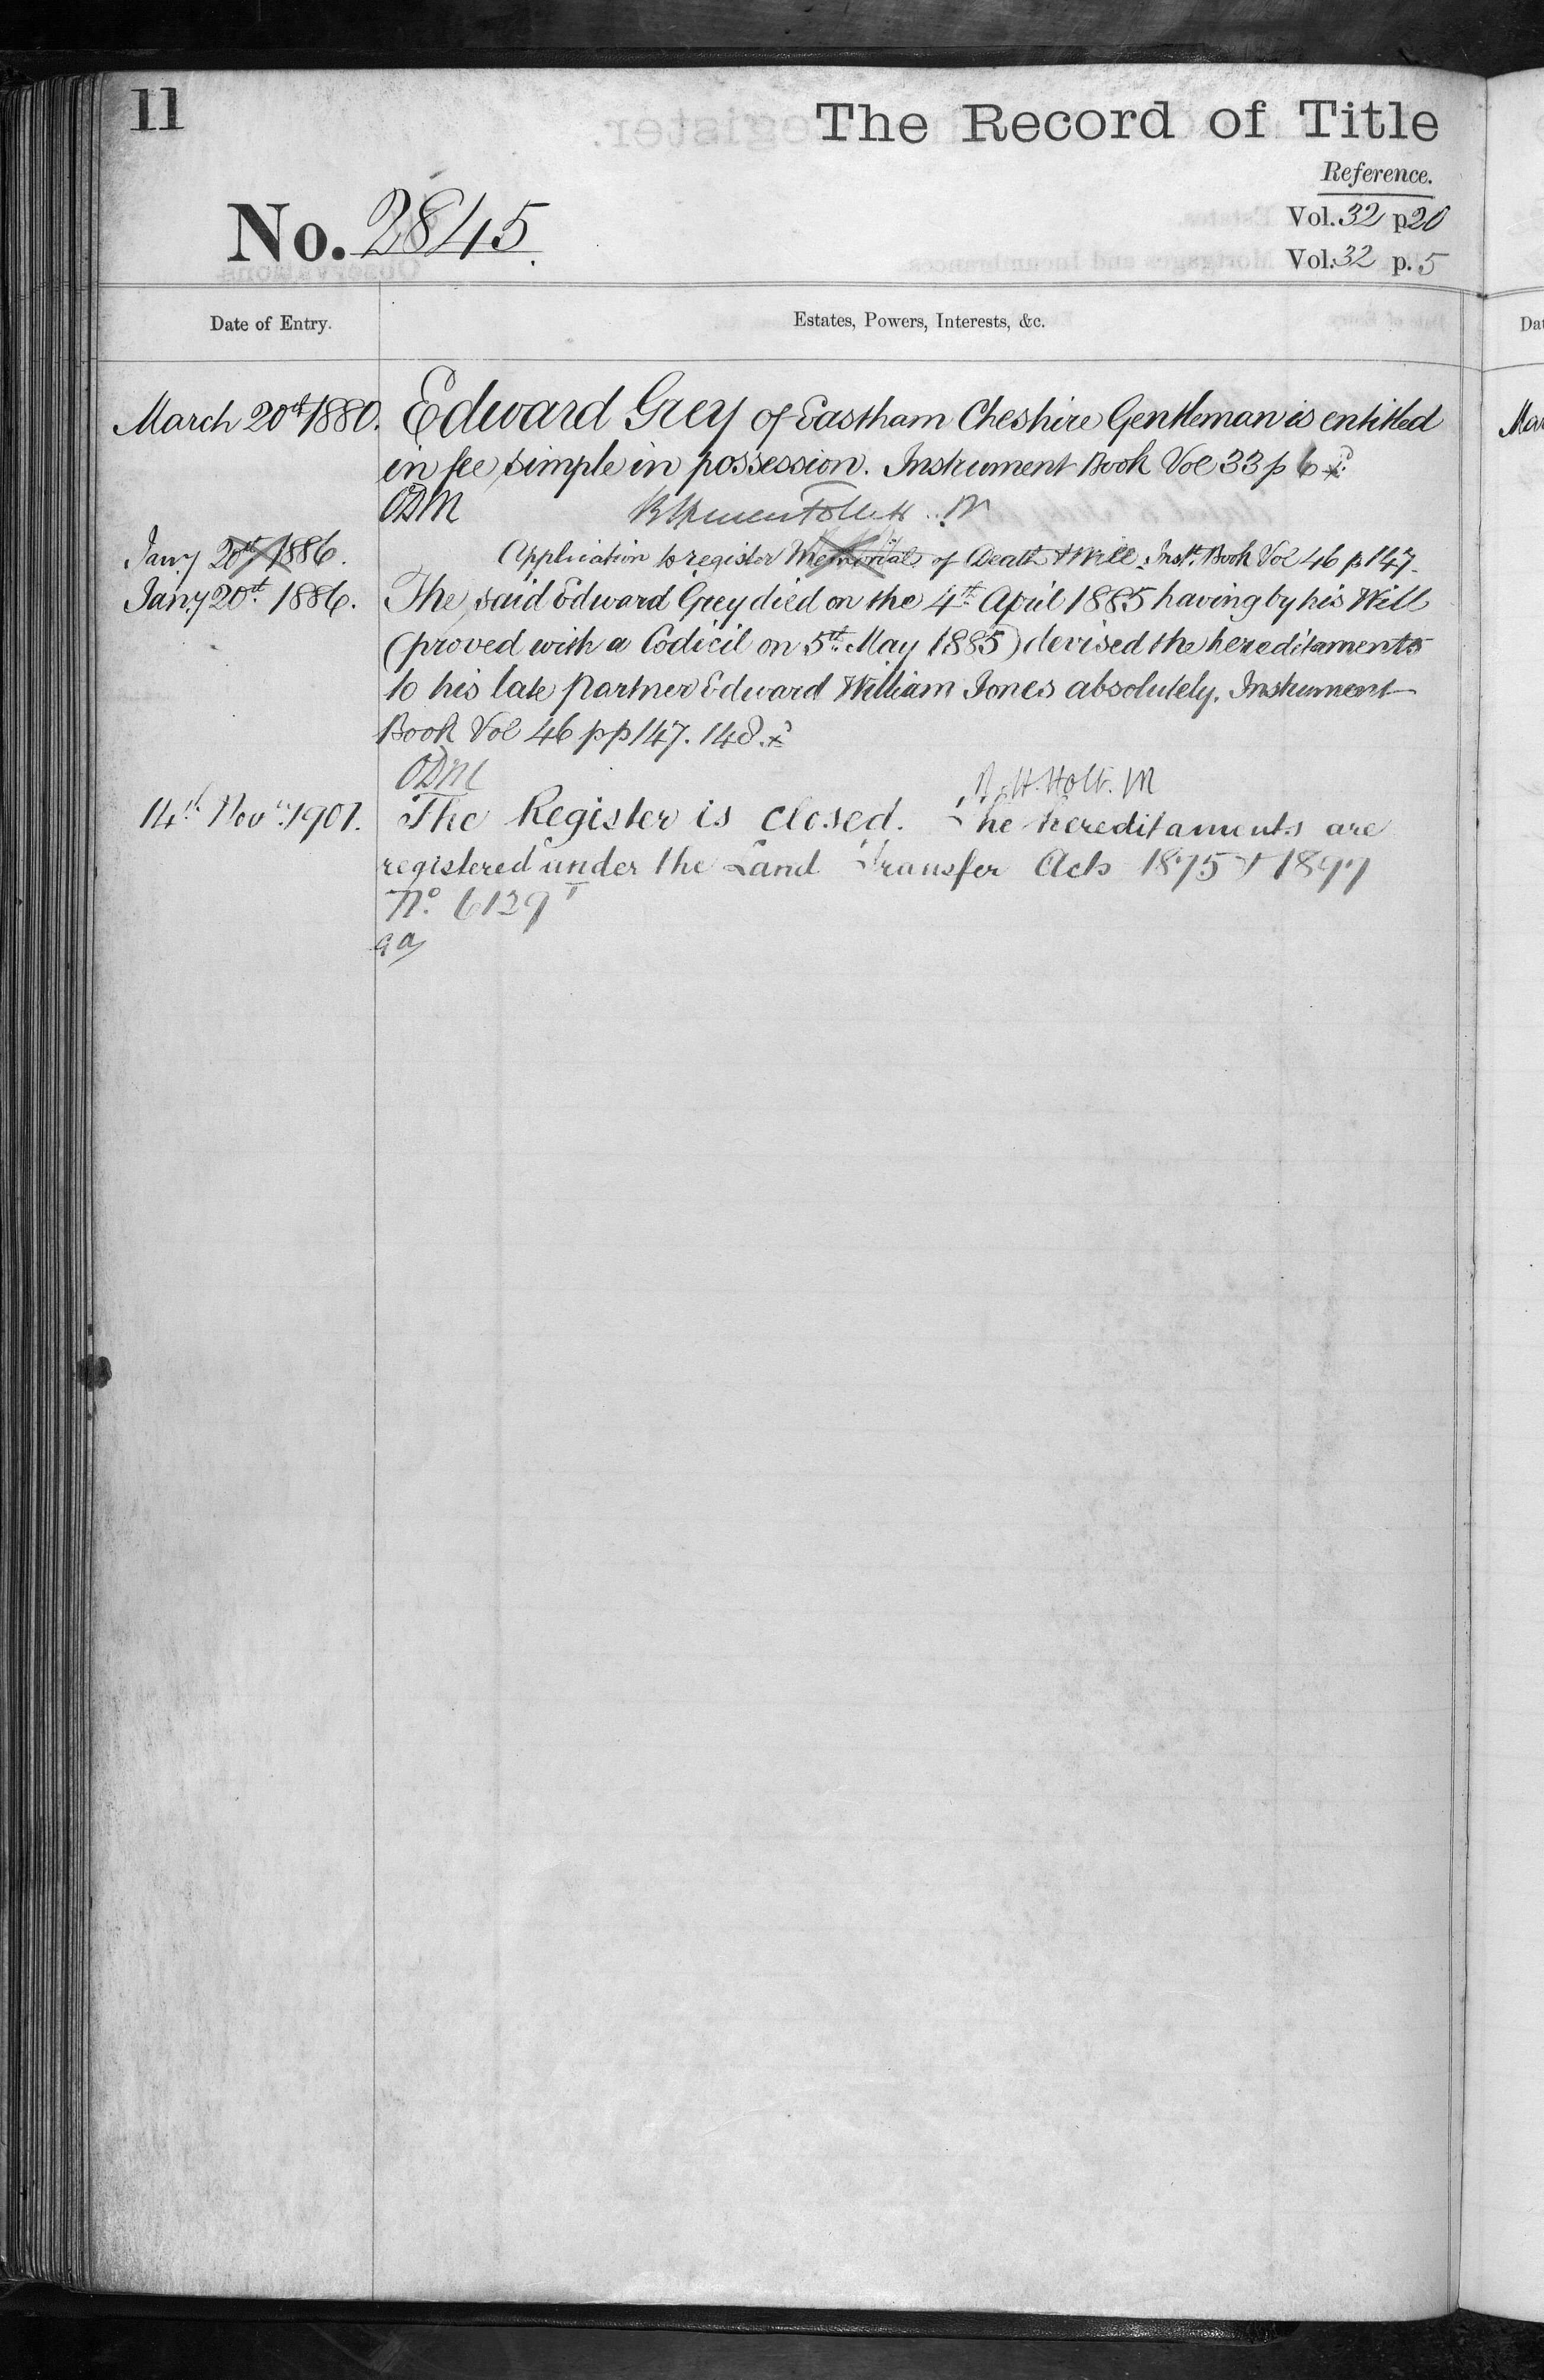 11
The Record of Title
Reference.
No. 2845.
Vol. 32 p 20
Vol. 32 p. 5
Date of Entry.
Estates, Powers, Interests, &c.
March 20th 1880. Edward Grey of Eastham Cheshire Gentleman is entitled
in fee simple in possession. Instrument Book Vol 33 p 6
ODM
Jany 20th 1886. Application to register Memorial of Death & Will: Inst. Book Vol 46 p 147.
Jany 20th 1886. The said Edward Grey died on the 4th April 1885 having by his Will
(proved with a Codicil on 5th May 1885) devised the hereditaments
to his late partner Edward William Jones absolutely. Instrument
Book Vol 46 pp 147. 148.
ODM
R. H. Holt. M
14th Nov. 1901. The Register is closed. The hereditaments are
registered under the Land Transfer Acts 1875 & 1897
No. 6129